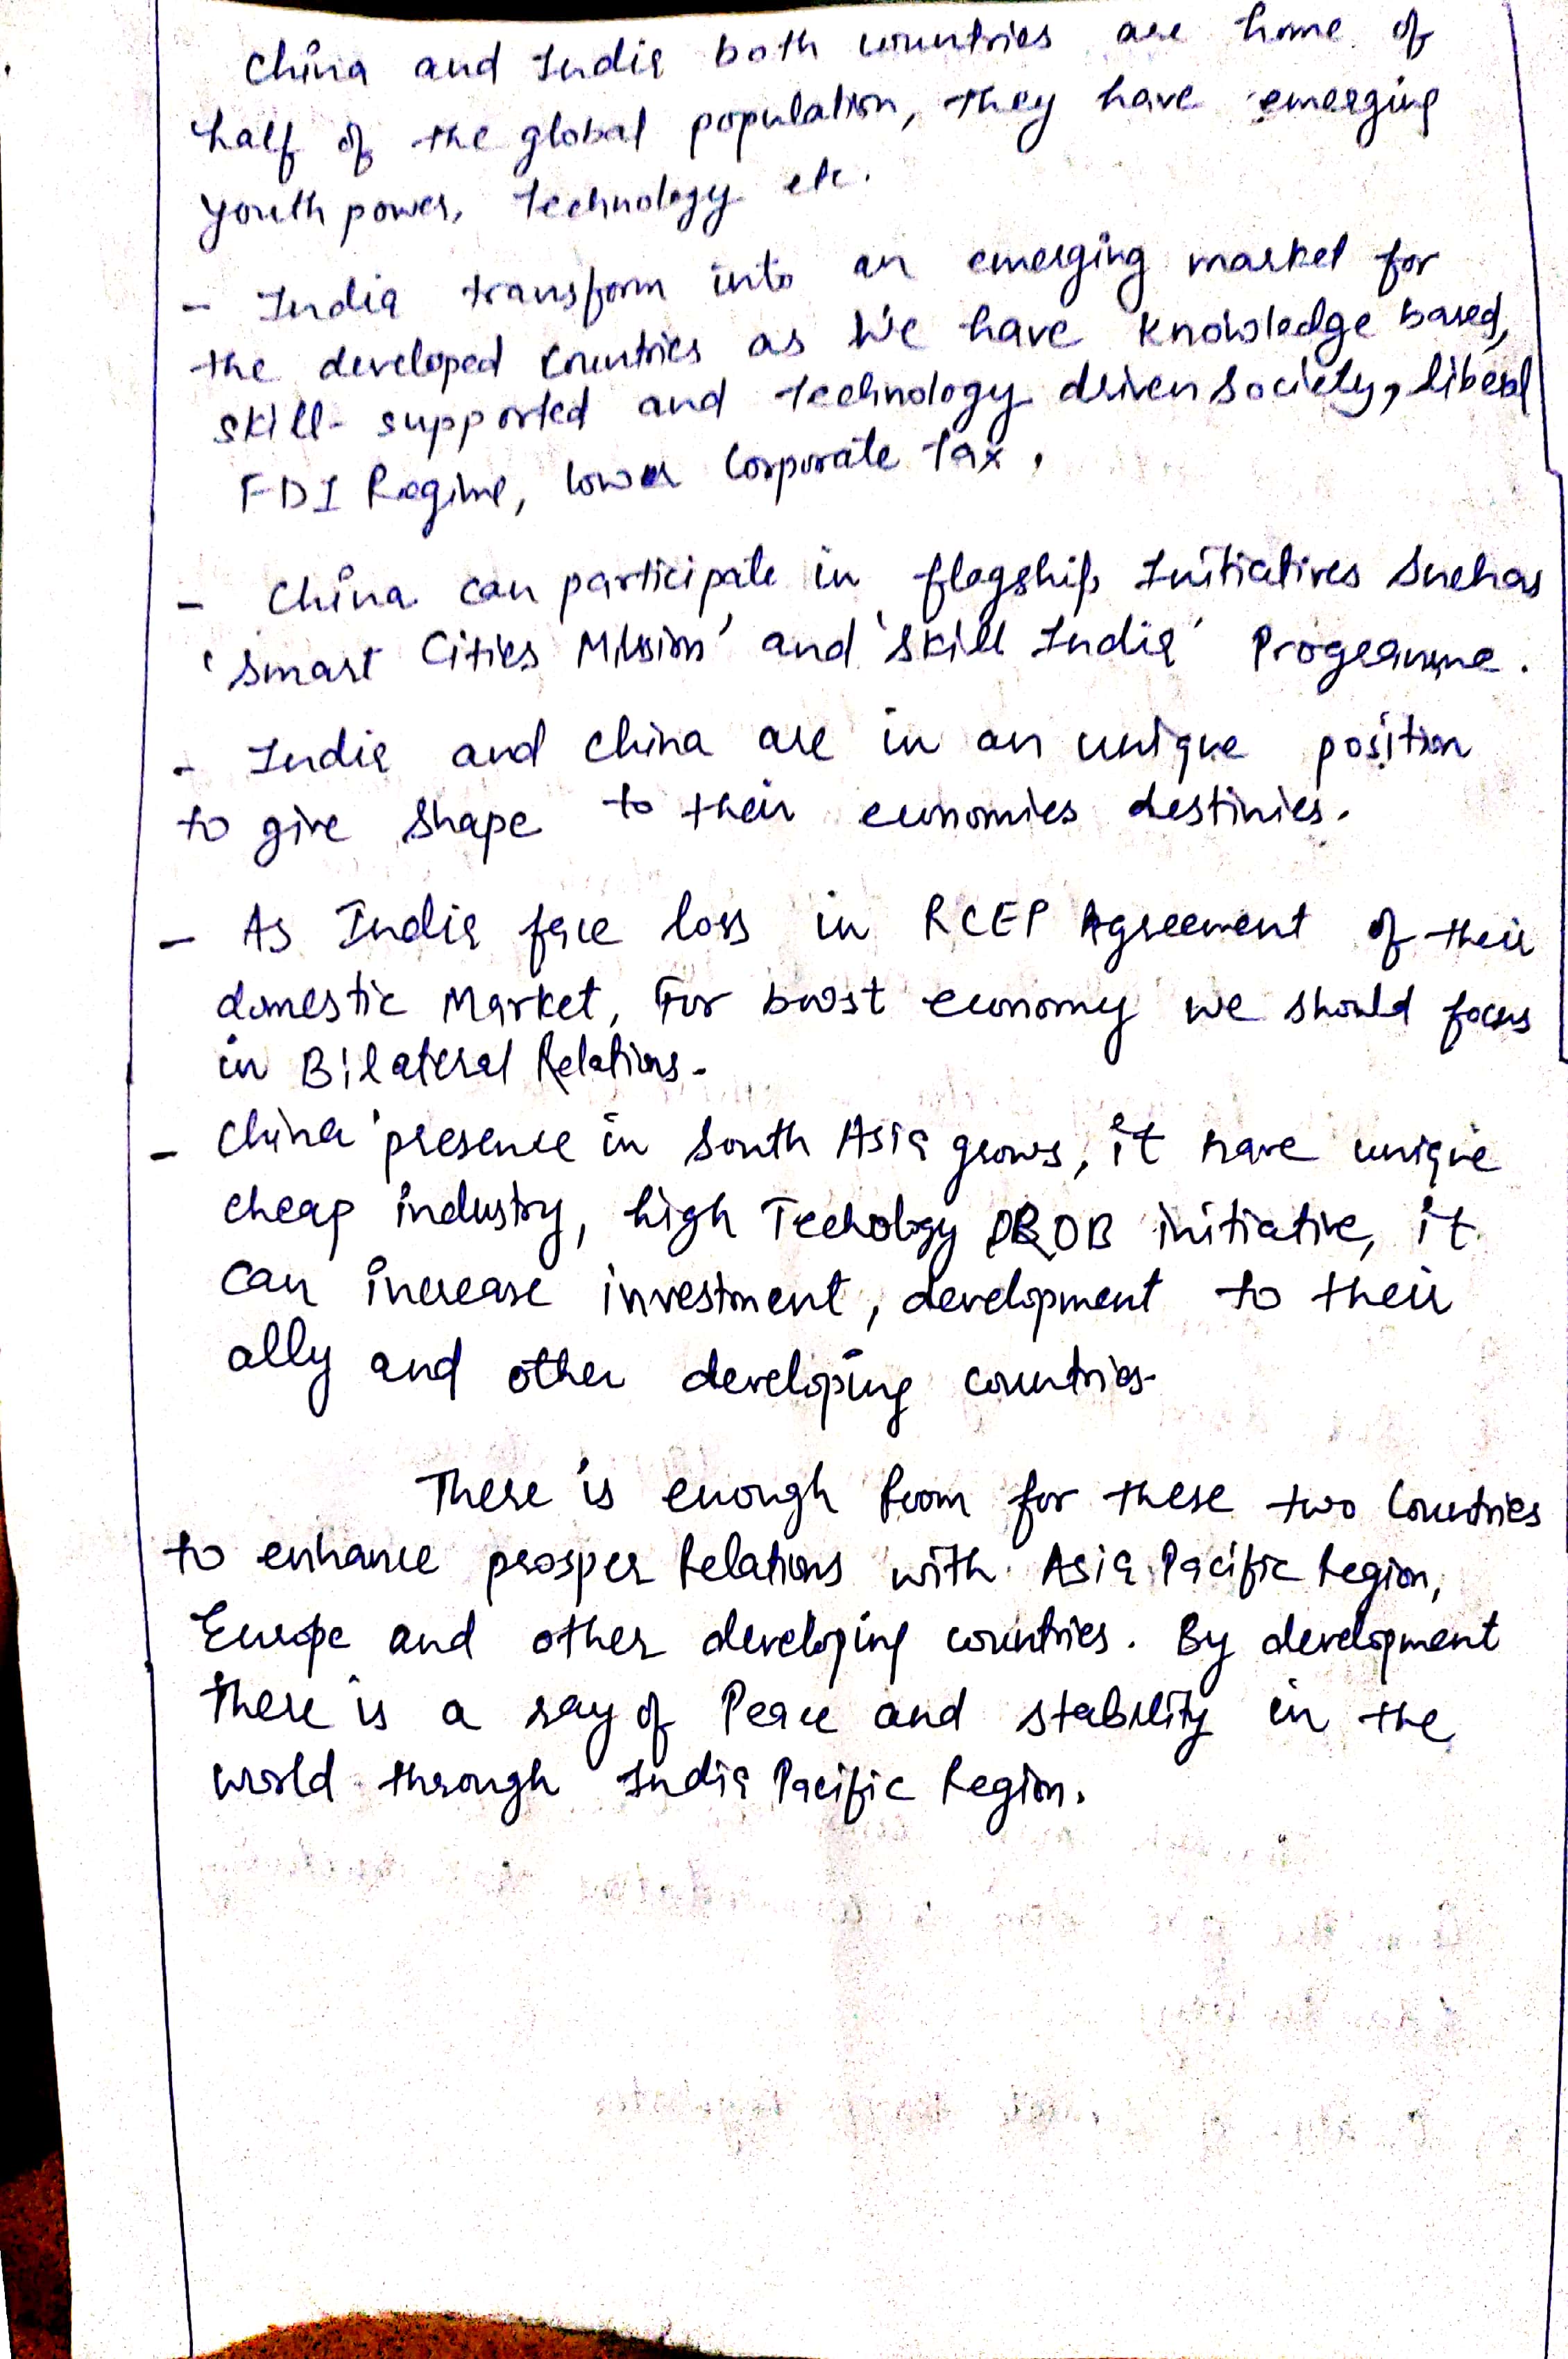 China and India both countries are home of
half of the global population, they have emerging
Youth power, technology etc.
- India transform into an emerging market for
the developed countries as we have knowledge based,
skill-supported and technology driven society, liberal
FDI Regime, lower Corporate Tax.
- China can participate in flagship Initiatives Such as
'Smart Cities Mission' and 'Skill India' Programme.
- India and China are in an unique position
to give shape to their economies destinies.
- As India face loss in RCEP Agreement of their
domestic Market, For boost economy we should focus
in Bilateral Relations.
- China' presence in South Asia grows, it have unique
cheap industry, high Techology OBOR initiative, it
can increase investment, development to their
ally and other developing countries.
There is enough Room for these two Countries
to enhance prosper Relations with Asia Pacific Region,
Europe and other developing countries. By development
there is a ray of Peace and stability in the
world through India Pacific Region.